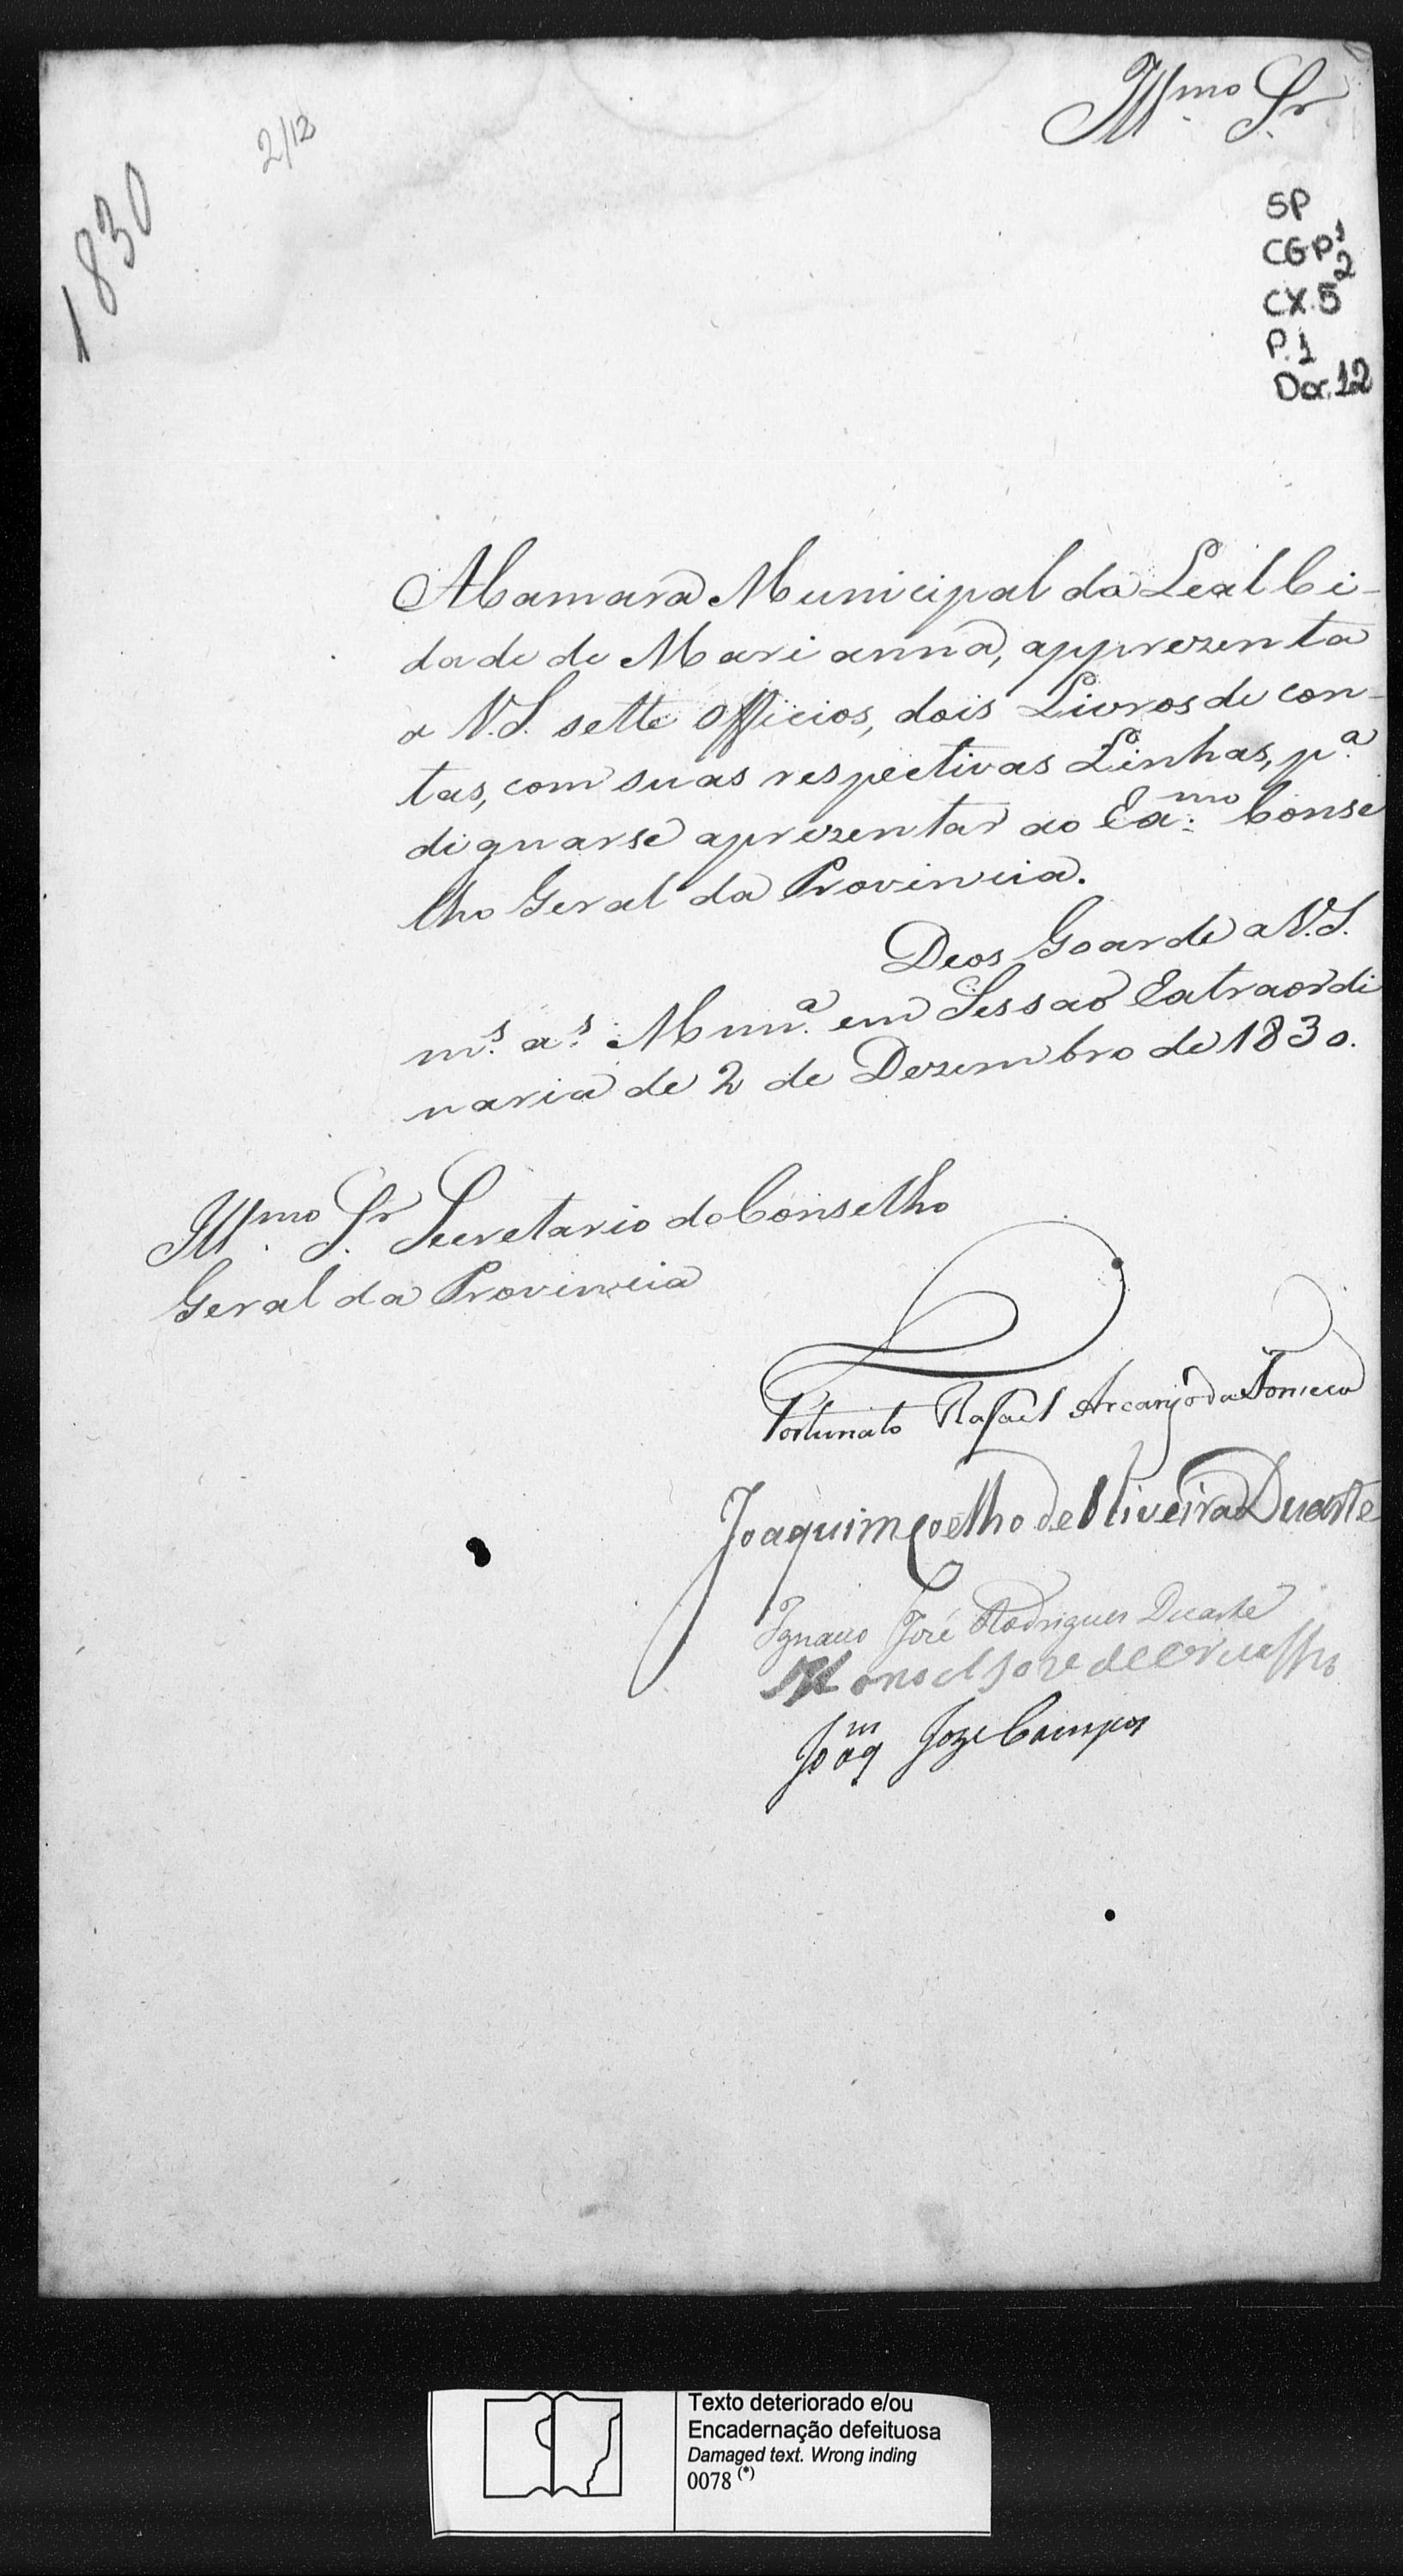 Ill.mo Sr.
2/12
1830
SP
CGP 1
2
CX. 5
P. 1
Doc. 12
A Camara Municipal da Leal Ci-
dade de Marianna, apprezenta
a V.S. sette Officios, dois Livros de con-
tas, com suas respectivas Linhas, p.a
dignarse aprezentar ao Ex.mo Conse
lho Geral da Provincia.
Deos Goarde a V.S.
m.s a.s Marn.a em Sessaõ Extraordi
naria de 2 de Dezembro de 1830.
Ill.mo Sr. Secretario do Conselho
Geral da Provincia
Fortunato Rafael Arcanjo da Fonseca
Joaquim Coelho de Oliveira Duarte
Ignacio José Rodrigues Duarte
Manoel Joze de
Joaq.m Joze Campos
Texto deteriorado e/ou
Encadernação defeituosa
Damaged text. Wrong inding
0078 (*)